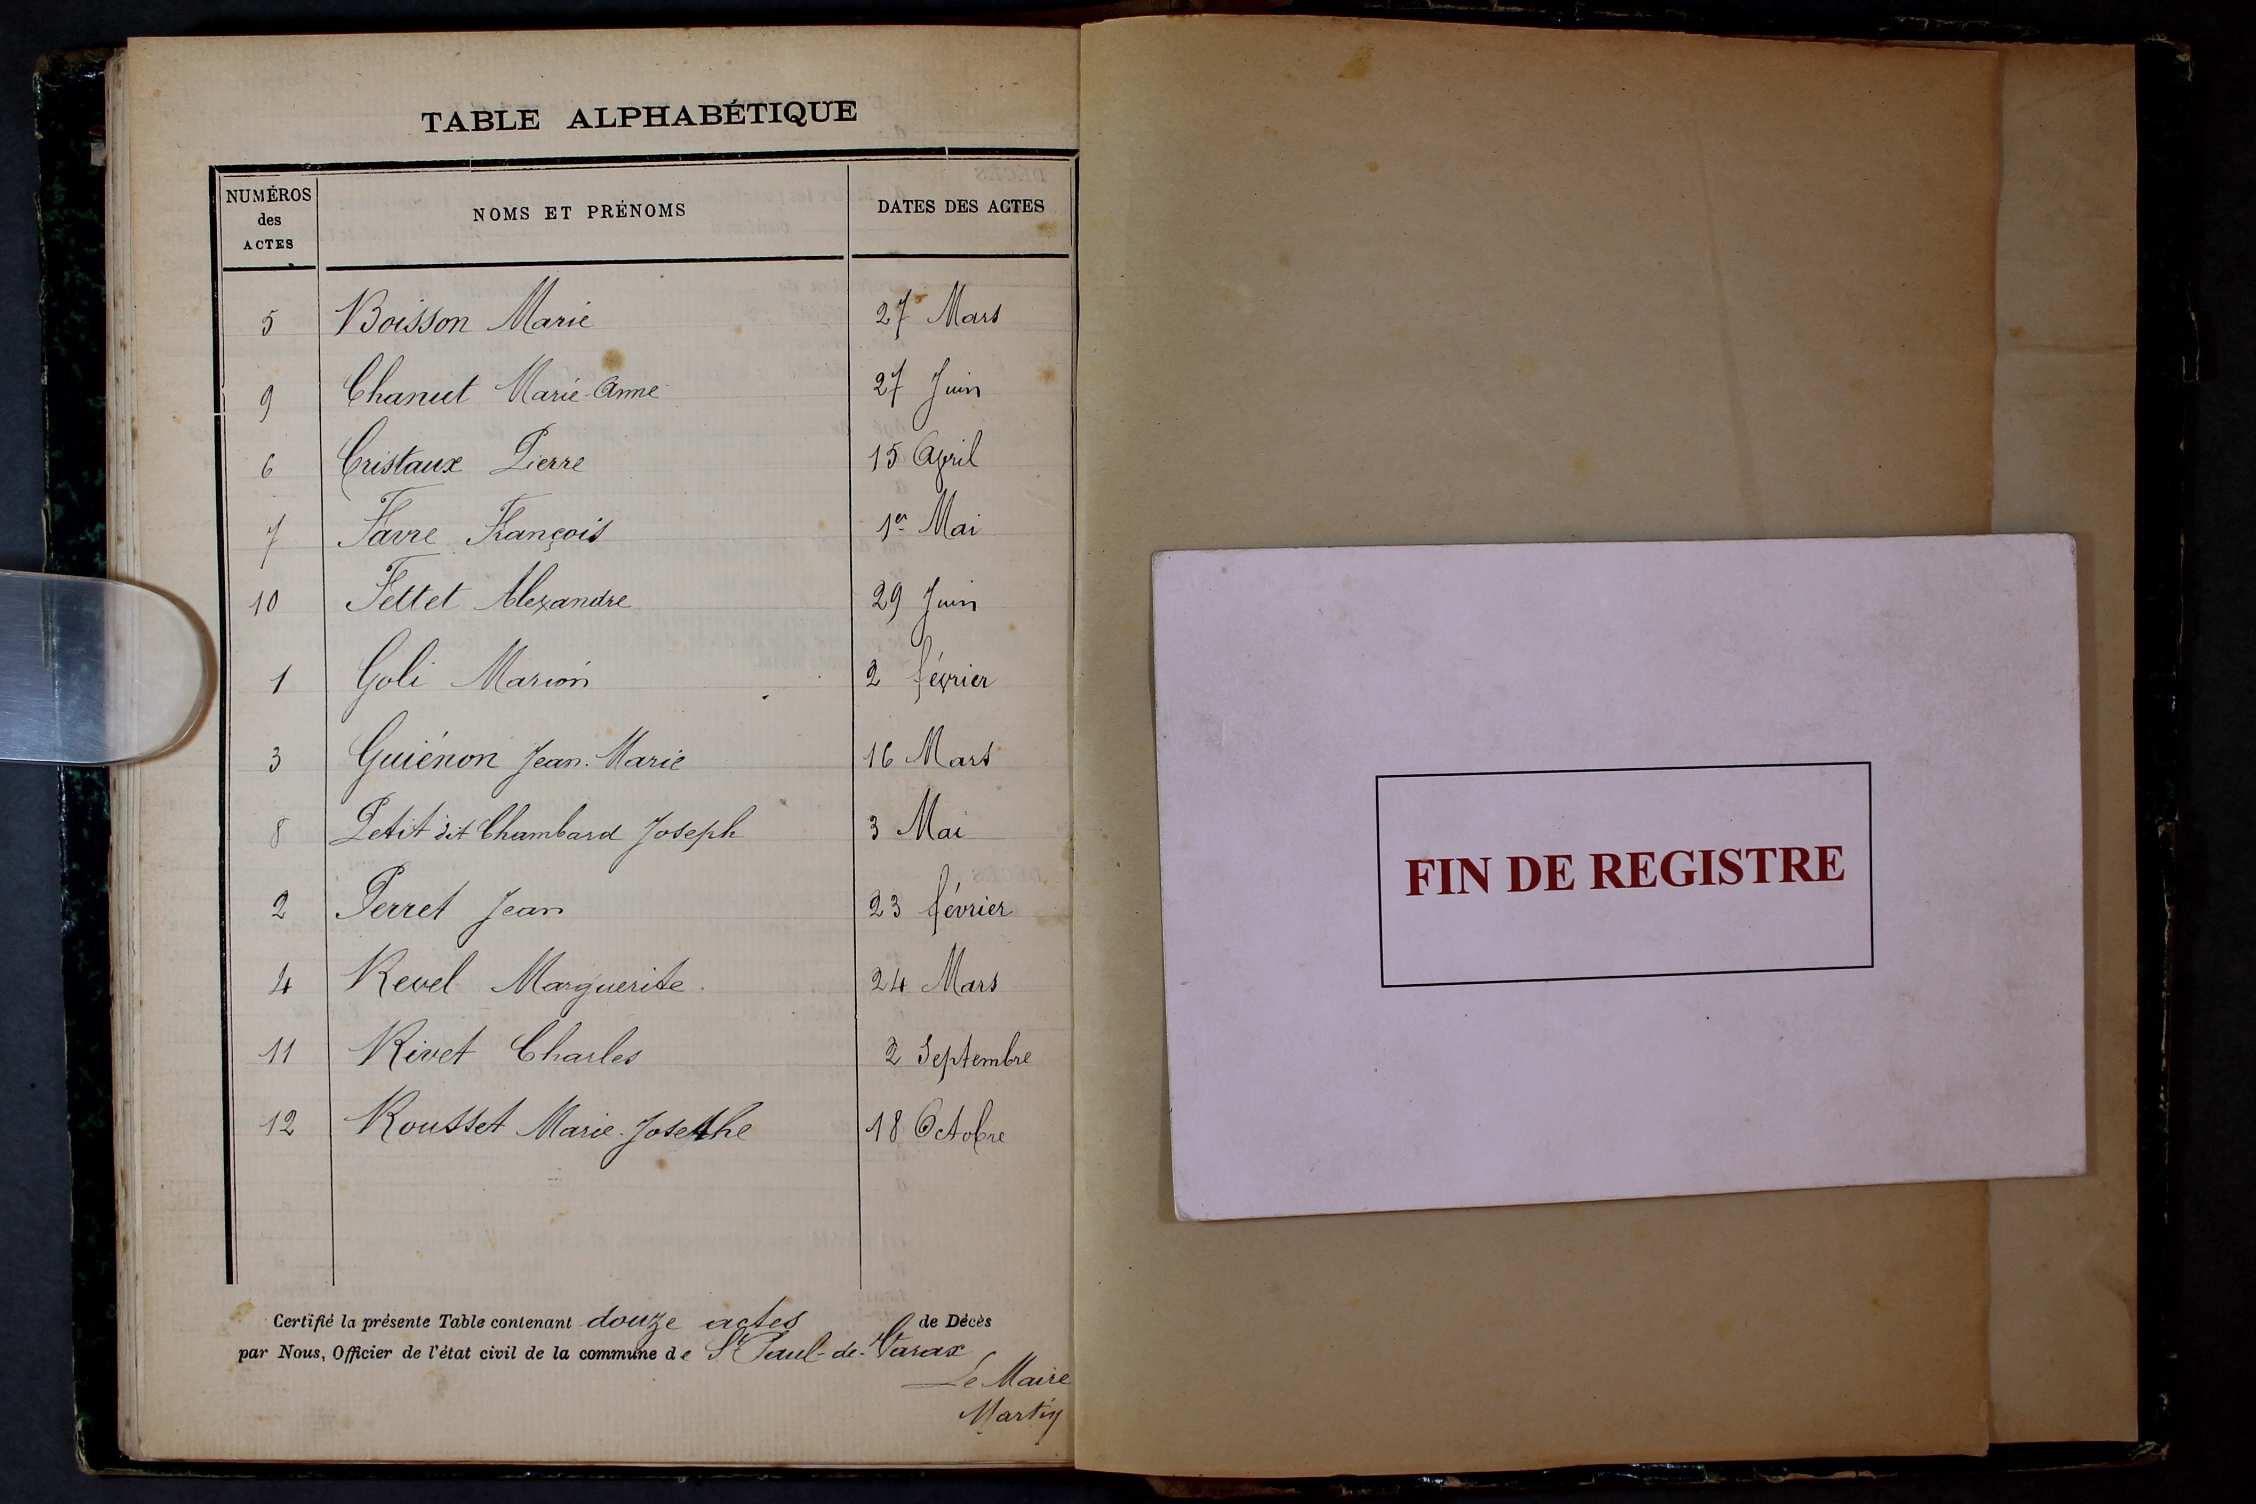 TABLE ALPHABÉTIQUE
NUMÉROS
des
ACTES
NOMS ET PRÉNOMS
DATES DES ACTES
5 Boisson Marie 27 Mars
9 Chanut Marie-Anne 27 Juin
6 Cristaux Pierre 15 April
7 Favre François 1er Mai
10 Fettet Alexandre 29 Juin
1 Goli Marion 2 février
3 Guiénon Jean-Marie 16 Mars
8 Petit dit Chambard Joseph 3 Mai
2 Perret Jean 23 février
4 Revel Marguerite 24 Mars
11 Rivet Charles 2 Septembre
12 Rousset Marie-Josethe 18 Octobre
Certifié la présente Table contenant douze actes de Décès
par Nous, Officier de l'état civil de la commune de St Paul-de-Varax
Le Maire
Martin
FIN DE REGISTRE